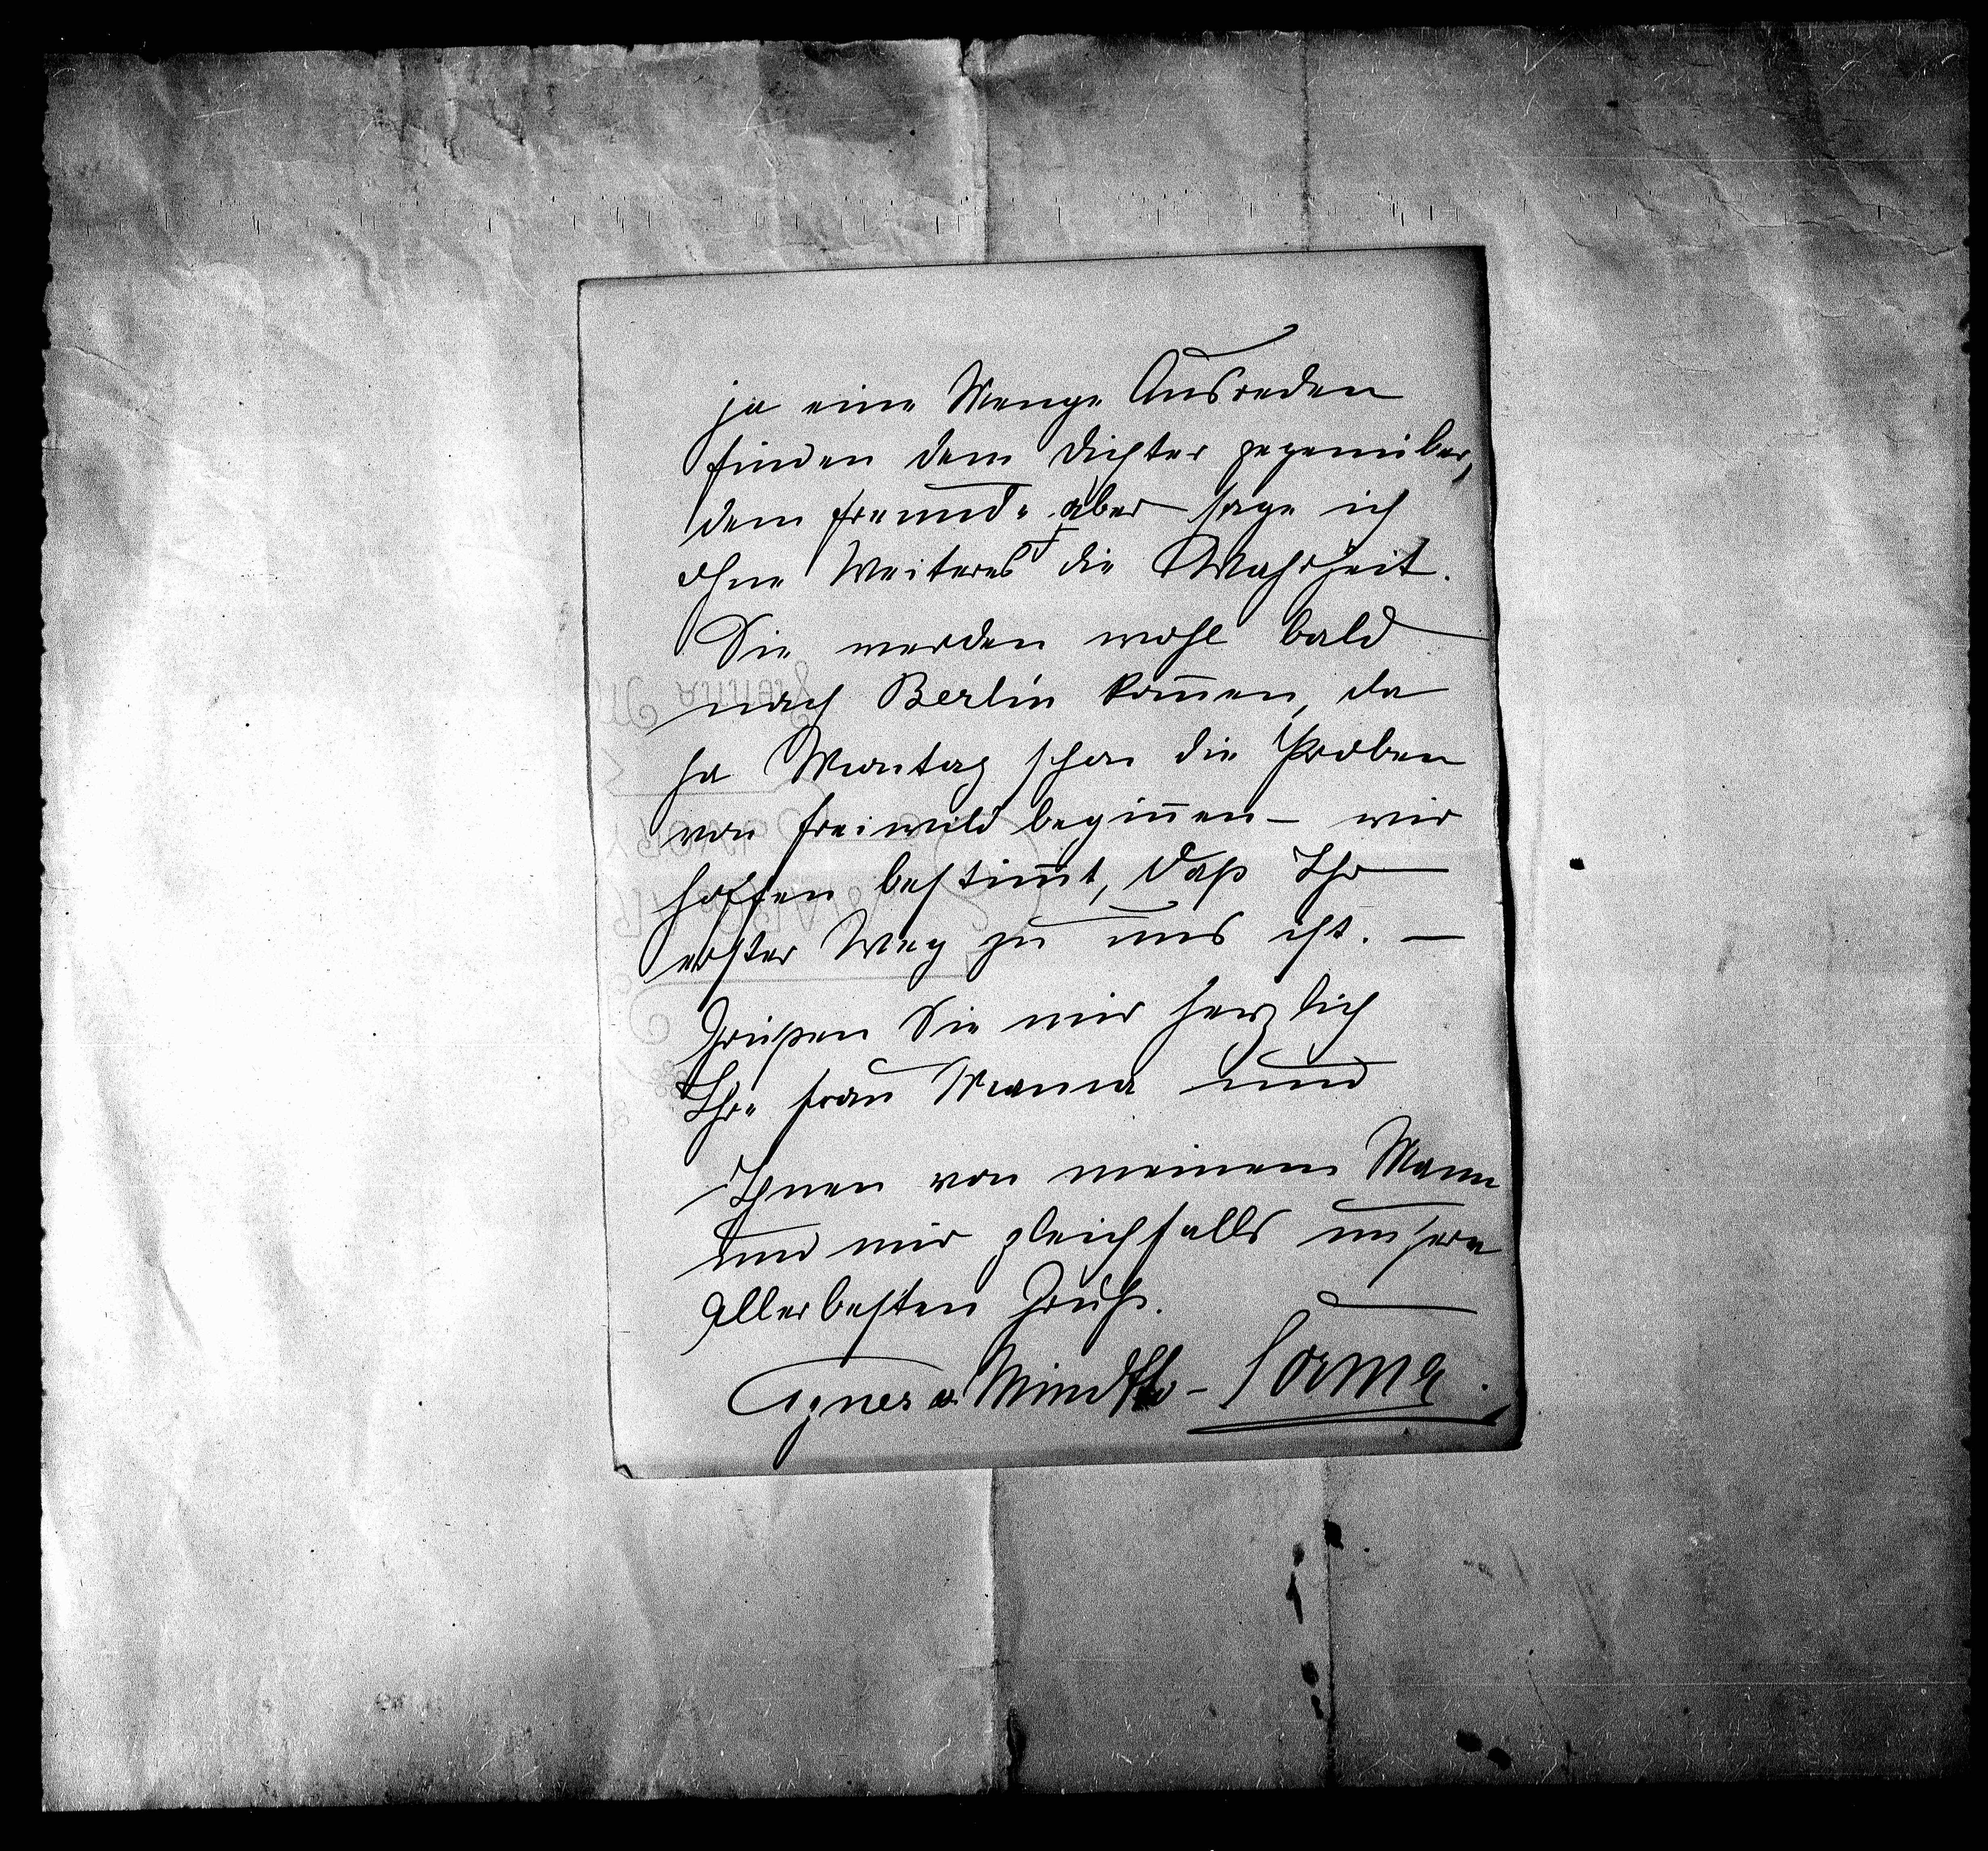 ja eine Menge Ausreden
finden dem Dichter gegenüber,
dem Freunde aber sage ich
ohne Weiteres die Wahrheit.
Sie werden wohl bald
nach Berlin kom̄en, da
ja Montag schon die Proben
von Freiwild begin̄en – wir
hoffen bestim̄t, daß Ihr
erster Weg zu uns ist. –
Grüßen Sie mir herzlich
Ihre Frau Mama und
Ihnen von meinem Mann
und mir gleichfalls unsern
allerbesten Gruß.
Agnes v. Minotto-Sorma.